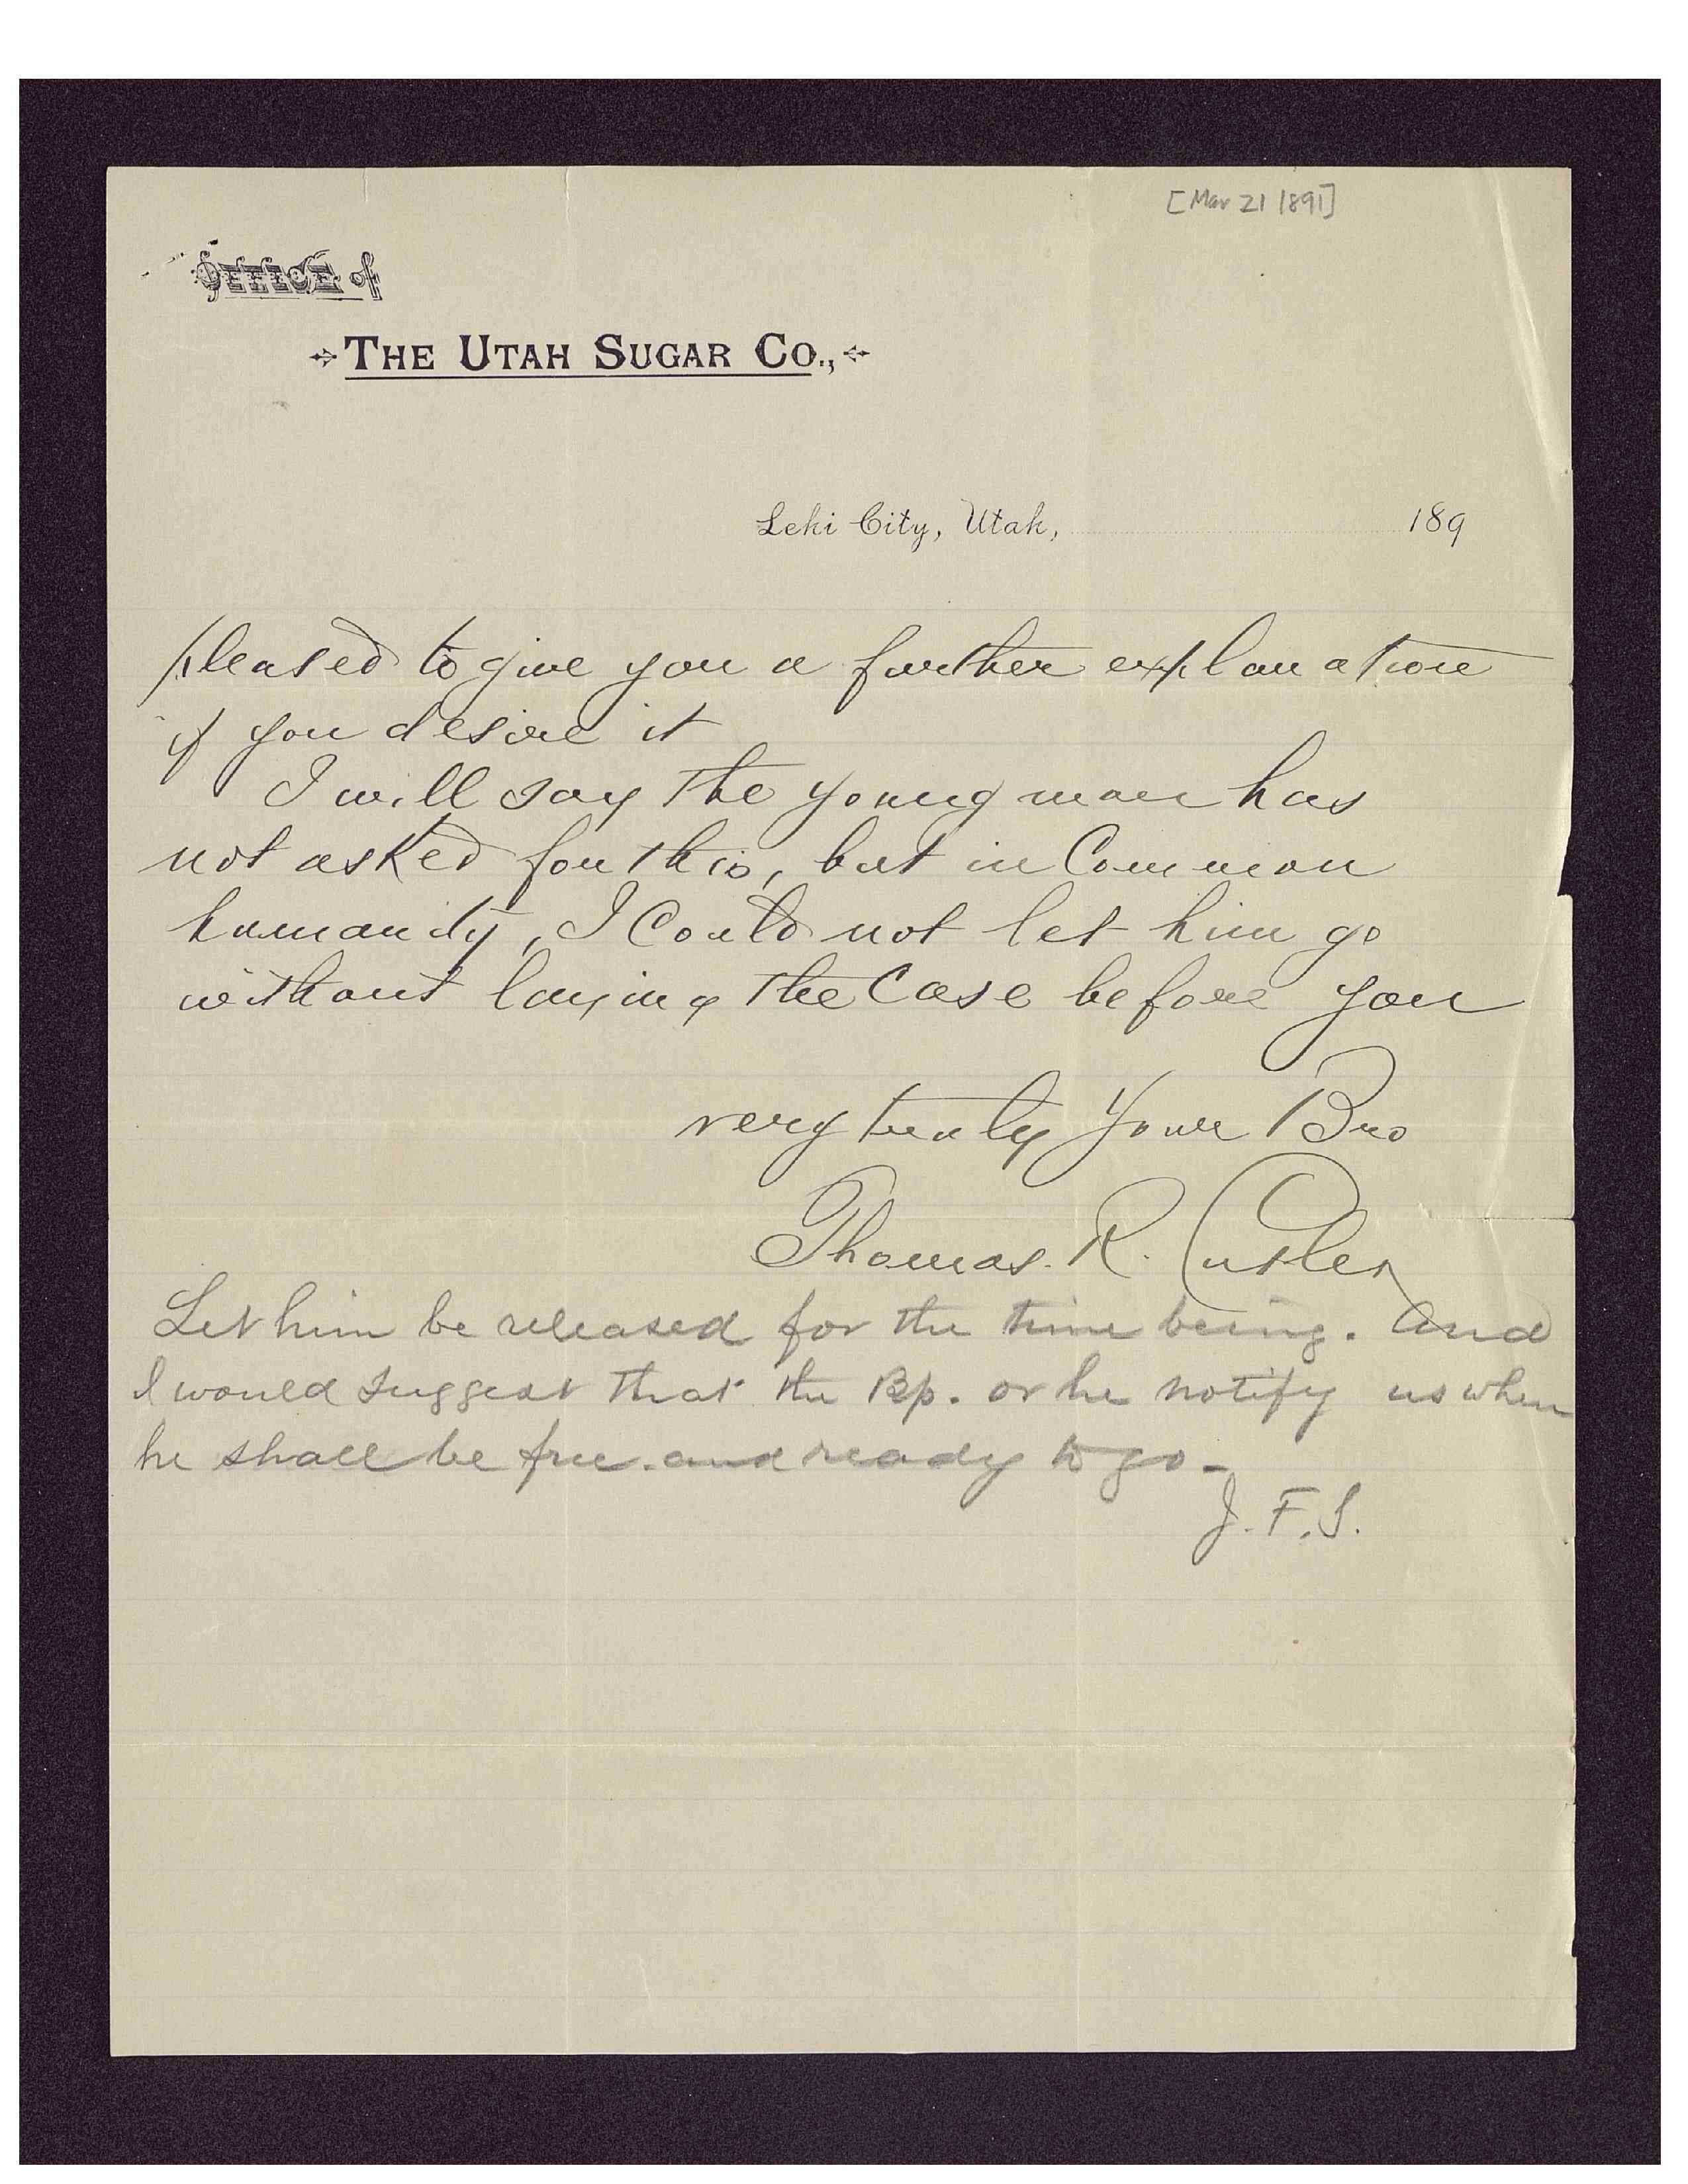 [Mar 21 1891]
OFFICE of
THE UTAH SUGAR CO.,
Lehi City, Utah, 189
pleased to give you a further explanation
if you desire it
I will say the young man has
not asked for this, but in Common
humanity, I Could not let him go
without laying the Case before you
very truly Your Bro
Thomas. R. Cutler
Let him be released for the time being. And
I would suggest that the Bp. or he notify us when
he shall be free. and ready to go -
J. F. S.